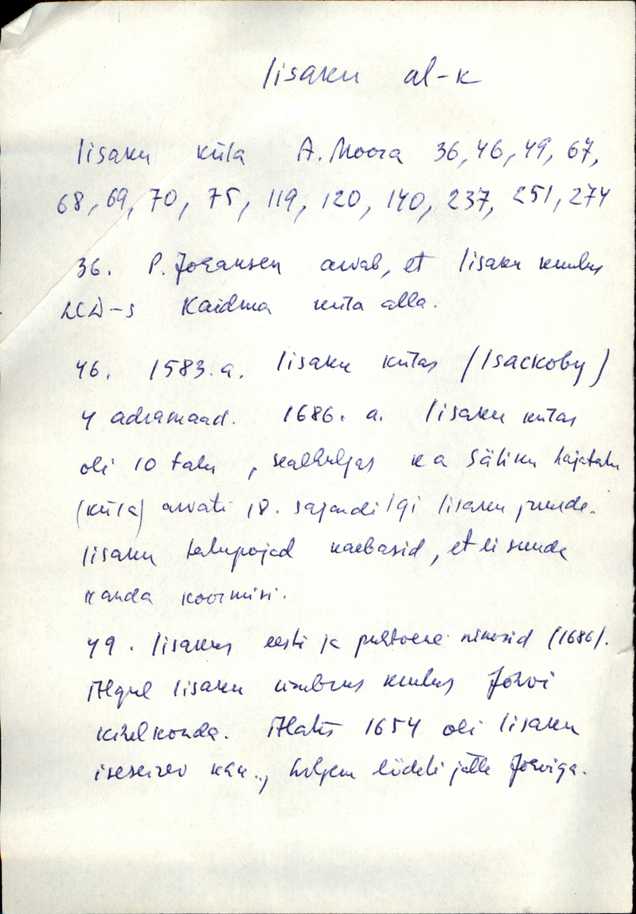 Iisaku al-k
Iisaku küla A. Moora 36, 46, 49, 67,
68, 69, 70, 75, 119, 120, 140, 237, 251, 274
36. P. Johansen arvab, et Iisaku kuulus
LCD-s Kaidma küla alla.
46. 1583. a. Iisaku külas (Isackoby)
4 adramaad. 1686. a. Iisaku külas
oli 10 talu, sealhulgas ka Säliku hajatalu
(küla) arvati 18. sajandilgi Iisaku juurde.
Iisaku talupojad kaebasid, et ei suuda
kanda koormisi.
49. Iisakus eesti ja nimesid (1686).
Algul Iisaku ümbrus kuulus Jõhvi
kihelkonda. Alates 1654 oli Iisaku
iseseisev khk., hiljem liideti jälle Jõhviga.